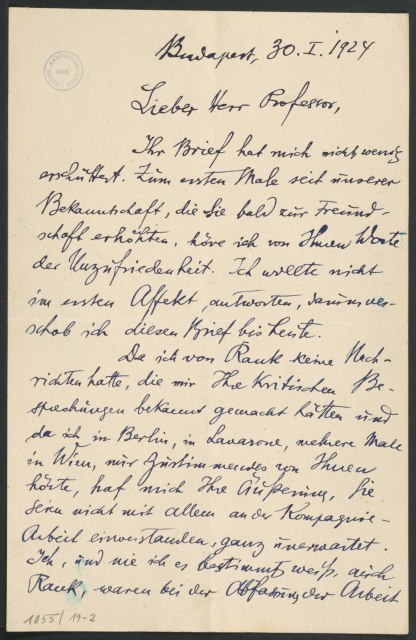 Budapest, 30. I. 1924
Lieber Herr Professor,
Ihr Brief hat mich nicht wenig
erschüttert. Zum ersten Male seit unserer
Bekanntschaft, die Sie bald zur Freund-
schaft erhöhten, höre ich von Ihnen Worte
der Unzufriedenheit. Ich wollte nicht
im ersten Affekt antworten, darum ver-
schob ich diesen Brief bis heute.
Da ich von Rank keine Nach-
richten hatte, die mir Ihre kritischen Be-
sprechungen bekannt gemacht hätten und
da ich in Berlin, in Lavarone, mehrere Male
in Wien, nur Zustimmendes von Ihnen
hörte, traf mich Ihre Äußerung, Sie
seien nicht mit allem an der Kompagnie-
Arbeit einverstanden, ganz unerwartet.
Ich, und wie ich es bestimmt weiß, auch
Rank, waren bei der Abfassung der Arbeit
1055/19-2